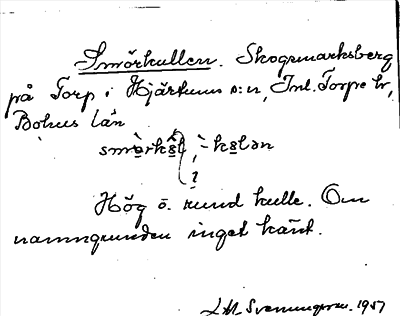 Smörkullen. Skogsmarksberg
på Torp i Hjärtums s:n, Inl. Torpe hd,
Bohus län
smörko̱l, -ko̱lən
?
Hög o. rund kulle. Om
namngrunden inget känt.
Svenungsson. 1957